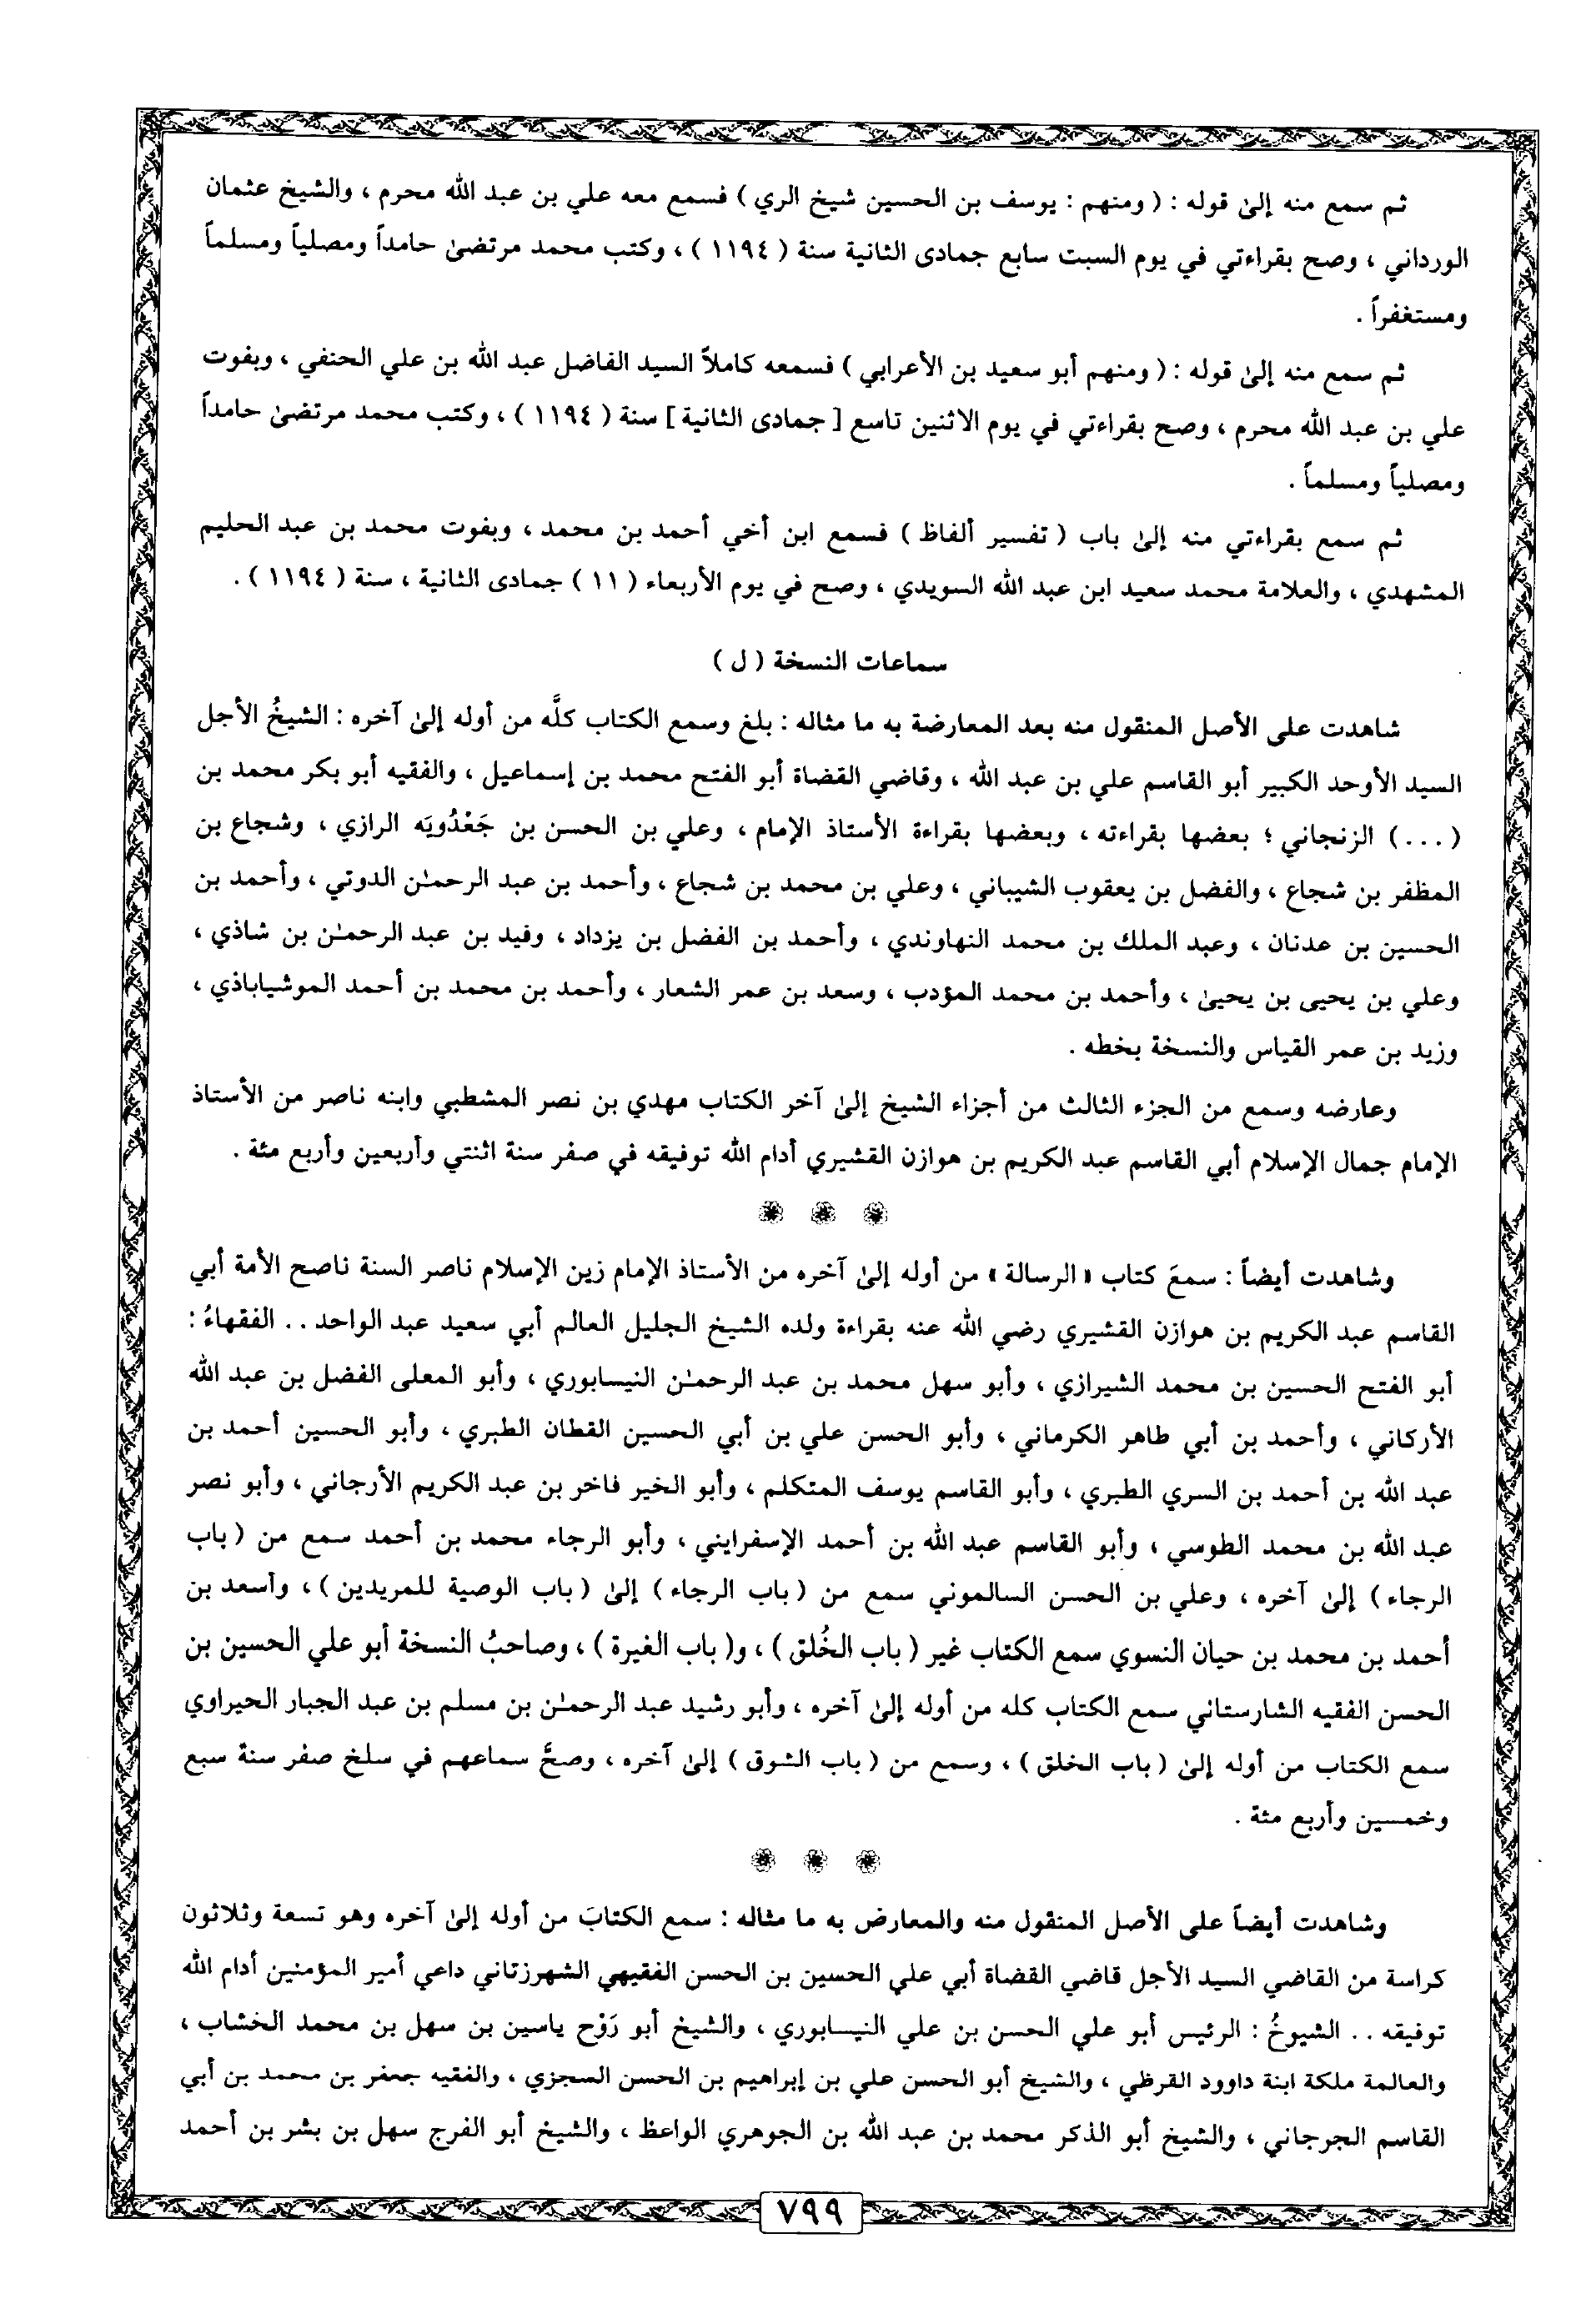 ثم سمع منه إلىٰ قوله : ( ومنهم : يوسف بن الحسين شيخ الري ) فسمع معه علي بن عبد الله محرم ، والشيخ عثمان
الورداني ، وصح بقراءتي في يوم السبت سابع جمادى الثانية سنة ( ١١٩٤ ) ، وكتب محمد مرتضىٰ حامداً ومصلياً ومسلماً
ومستغفراً .
ثم سمع منه إلىٰ قوله : ( ومنهم أبو سعيد بن الأعرابي ) فسمعه كاملاً السيد الفاضل عبد الله بن علي الحنفي ، وبفوت
علي بن عبد الله محرم ، وصح بقراءتي في يوم الاثنين تاسع [ جمادى الثانية ] سنة ( ١١٩٤ ) ، وكتب محمد مرتضىٰ حامداً
ومصلياً ومسلماً .
ثم سمع بقراءتي منه إلىٰ باب ( تفسير ألفاظ ) فسمع ابن أخي أحمد بن محمد ، وبفوت محمد بن عبد الحليم
المشهدي ، والعلامة محمد سعيد ابن عبد الله السويدي ، وصح في يوم الأربعاء ( ١١ ) جمادى الثانية ، سنة ( ١١٩٤ ) .
سماعات النسخة ( ل )
شاهدت على الأصل المنقول منه بعد المعارضة به ما مثاله : بلغ وسمع الكتاب كلَّه من أوله إلىٰ آخره : الشيخُ الأجل
السيد الأوحد الكبير أبو القاسم علي بن عبد الله ، وقاضي القضاة أبو الفتح محمد بن إسماعيل ، والفقيه أبو بكر محمد بن
( ... ) الزنجاني ؛ بعضها بقراءته ، وبعضها بقراءة الأستاذ الإمام ، وعلي بن الحسن بن جَعْدُويَه الرازي ، وشجاع بن
المظفر بن شجاع ، والفضل بن يعقوب الشيباني ، وعلي بن محمد بن شجاع ، وأحمد بن عبد الرحمـٰن الدوتي ، وأحمد بن
الحسين بن عدنان ، وعبد الملك بن محمد النهاوندي ، وأحمد بن الفضل بن يزداد ، وفيد بن عبد الرحمـٰن بن شاذي ،
وعلي بن يحيى بن يحيىٰ ، وأحمد بن محمد المؤدب ، وسعد بن عمر الشعار ، وأحمد بن محمد بن أحمد الموشياباذي ،
وزيد بن عمر القياس والنسخة بخطه .
وعارضه وسمع من الجزء الثالث من أجزاء الشيخ إلىٰ آخر الكتاب مهدي بن نصر المشطبي وابنه ناصر من الأستاذ
الإمام جمال الإسلام أبي القاسم عبد الكريم بن هوازن القشيري أدام الله توفيقه في صفر سنة اثنتي وأربعين وأربع مئة .
وشاهدت أيضاً : سمعَ كتاب « الرسالة » من أوله إلىٰ آخره من الأستاذ الإمام زين الإسلام ناصر السنة ناصح الأمة أبي
القاسم عبد الكريم بن هوازن القشيري رضي الله عنه بقراءة ولده الشيخ الجليل العالم أبي سعيد عبد الواحد .. الفقهاءُ :
أبو الفتح الحسين بن محمد الشيرازي ، وأبو سهل محمد بن عبد الرحمـٰن النيسابوري ، وأبو المعلى الفضل بن عبد الله
الأركاني ، وأحمد بن أبي طاهر الكرماني ، وأبو الحسن علي بن أبي الحسين القطان الطبري ، وأبو الحسين أحمد بن
عبد الله بن أحمد بن السري الطبري ، وأبو القاسم يوسف المتكلم ، وأبو الخير فاخر بن عبد الكريم الأرجاني ، وأبو نصر
عبد الله بن محمد الطوسي ، وأبو القاسم عبد الله بن أحمد الإسفرايني ، وأبو الرجاء محمد بن أحمد سمع من ( باب
الرجاء ) إلىٰ آخره ، وعلي بن الحسن السالموني سمع من ( باب الرجاء ) إلىٰ ( باب الوصية للمريدين ) ، وأسعد بن
أحمد بن محمد بن حيان النسوي سمع الكتاب غير ( باب الخُلق ) ، و( باب الغيرة ) ، وصاحبُ النسخة أبو علي الحسين بن
الحسن الفقيه الشارستاني سمع الكتاب كله من أوله إلىٰ آخره ، وأبو رشيد عبد الرحمـٰن بن مسلم بن عبد الجبار الحيراوي
سمع الكتاب من أوله إلىٰ ( باب الخلق ) ، وسمع من ( باب الشوق ) إلىٰ آخره ، وصحَّ سماعهم في سلخ صفر سنة سبع
وخمسين وأربع مئة .
وشاهدت أيضاً على الأصل المنقول منه والمعارض به ما مثاله : سمع الكتابَ من أوله إلىٰ آخره وهو تسعة وثلاثون
كراسة من القاضي السيد الأجل قاضي القضاة أبي علي الحسين بن الحسن الفقيهي الشهرزتاني داعي أمير المؤمنين أدام الله
توفيقه .. الشيوخُ : الرئيس أبو علي الحسن بن علي النيسابوري ، والشيخ أبو رَوْح ياسين بن سهل بن محمد الخشاب ،
والعالمة ملكة ابنة داوود القرظي ، والشيخ أبو الحسن علي بن إبراهيم بن الحسن السجزي ، والفقيه جعفر بن محمد بن أبي
القاسم الجرجاني ، والشيخ أبو الذكر محمد بن عبد الله بن الجوهري الواعظ ، والشيخ أبو الفرج سهل بن بشر بن أحمد
٧٩٩